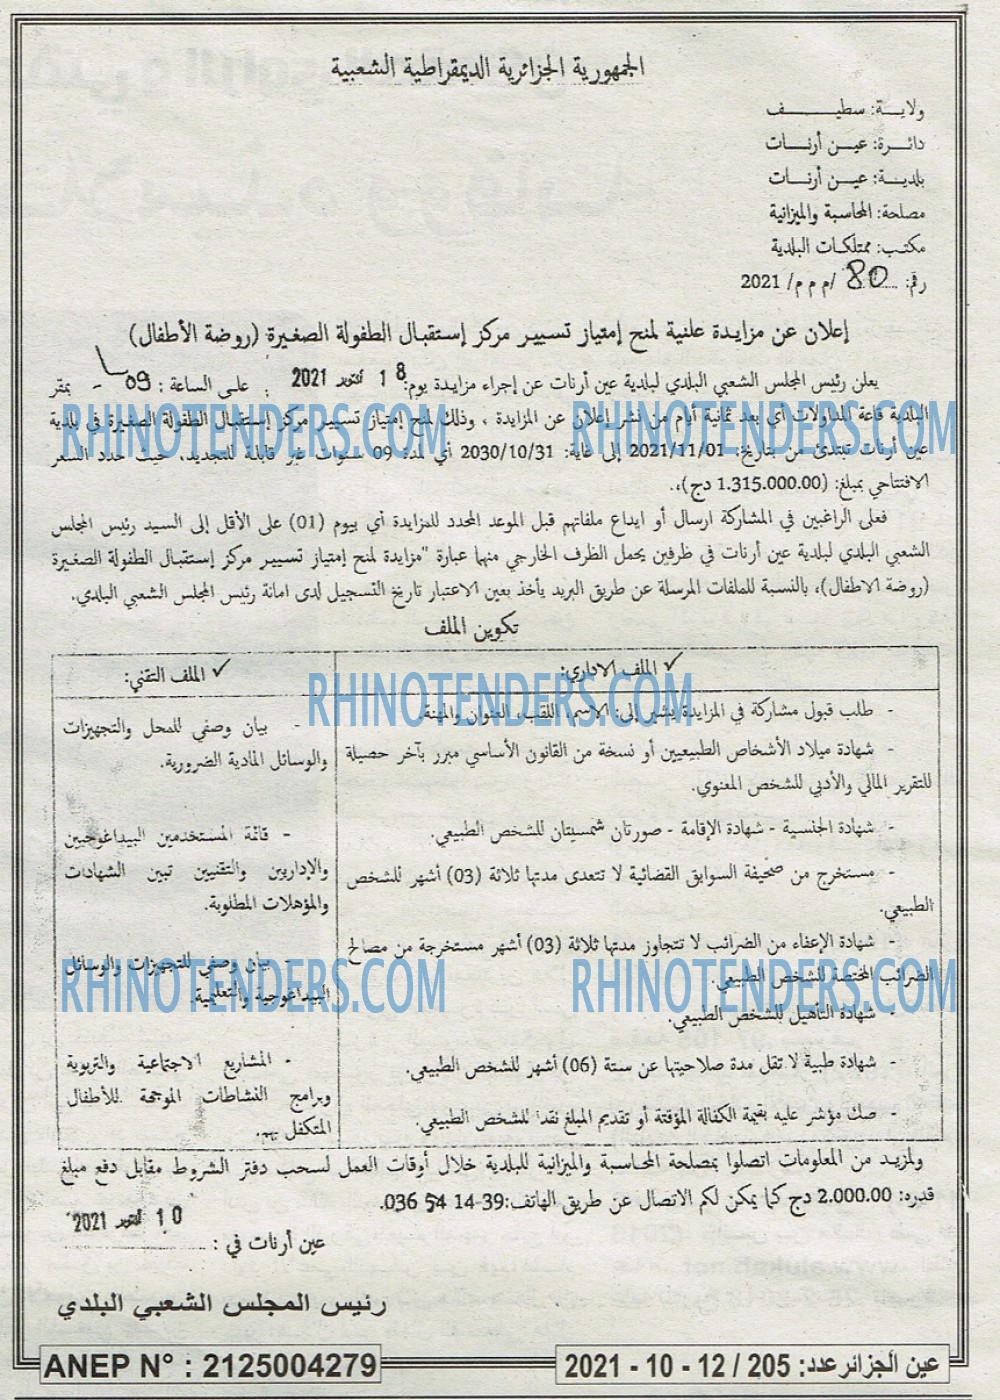 الجمهورية الجزائرية الديمقراطية الشعبية
ولايـــة: سطيـــــف
دائـــرة: عيـــن أرنـــات
بلديـة: عيـــن أرنـــات
مصلحة: المحاسبة والميزانية
مكتب: ممتلكات البلدية
رقم: 80 /م م م/ 2021
إعلان عن مزايدة علنية لمنح إمتياز تسيير مركز إستقبال الطفولة الصغيرة (روضة الأطفال)
يعلن رئيس المجلس الشعبي البلدي لبلدية عين أرنات عن إجراء مزايدة يوم: 18 أكتوبر 2021 : على الساعة : 09 بمقر
البلدية قاعة المداولات أي بعد ثمانية أيام من نشر إعلان عن المزايدة ، وذلك لمنح إمتياز تسيير مركز إستقبال الطفولة الصغيرة في بلدية
عين أرنات تبتدئ من بتاريخ: 2021/11/01 إلى غاية: 2030/10/31 أي لمدة 09 سنوات غير قابلة للتجديد، حيث حدد السعر
الافتتاحي بمبلغ: (1.315.000.00 دج)،.
فعلى الراغبين في المشاركة ارسال أو ايداع ملفاتهم قبل الموعد المحدد للمزايدة أي بيوم (01) على الأقل إلى السيد رئيس المجلس
الشعبي البلدي لبلدية عين أرنات في ظرفين يحمل الظرف الخارجي منهما عبارة "مزايدة لمنح إمتياز تسيير مركز إستقبال الطفولة الصغيرة
(روضة الاطفال)، بالنسبة للملفات المرسلة عن طريق البريد يأخذ بعين الاعتبار تاريخ التسجيل لدى امانة رئيس المجلس الشعبي البلدي.
تكوين الملف
✓ الملف الاداري:
- طلب قبول مشاركة في المزايدة يشير إلى: الاسم، اللقب، العنوان والمهنة.
- شهادة ميلاد الأشخاص الطبيعيين أو نسخة من القانون الأساسي مبرر بآخر حصيلة
للتقرير المالي والأدبي للشخص المعنوي.
- شهادة الجنسية - شهادة الإقامة - صورتان شمسيتان للشخص الطبيعي.
- مستخرج من صحيفة السوابق القضائية لا تتعدى مدتها ثلاثة (03) أشهر للشخص
الطبيعي.
- شهادة الإعفاء من الضرائب لا تتجاوز مدتها ثلاثة (03) أشهر مستخرجة من مصالح
الضرائب المختصة للشخص الطبيعي.
- شهادة التأهيل للشخص الطبيعي.
- شهادة طبية لا تقل مدة صلاحيتها عن ستة (06) أشهر للشخص الطبيعي.
- صك مؤشر عليه بقيمة الكفالة المؤقتة أو تقديم المبلغ نقدا للشخص الطبيعي.
✓ الملف التقني:
- بيان وصفي للمحل والتجهيزات
والوسائل المادية الضرورية.
- قائمة المستخدمين البيداغوجيين
والإداريين والتقنيين تبين الشهادات
والمؤهلات المطلوبة.
- بيان وصفي للتجهيزات والوسائل
البيداغوجية والتعليمية.
- المشاريع الاجتماعية والتربوية
وبرامج النشاطات الموجهة للأطفال
المتكفل بهم.
ولمزيد من المعلومات اتصلوا بمصلحة المحاسبة والميزانية للبلدية خلال أوقات العمل لسحب دفتر الشروط مقابل دفع مبلغ
قدره: 2.000.00 دج كما يمكن لكم الاتصال عن طريق الهاتف:39-14 54 036.
عين أرنات في : 10 أكتوبر 2021
رئيس المجلس الشعبي البلدي
عين الجزائر عدد: 205 / 12 - 10 - 2021
ANEP N° : 2125004279
RHINOTENDERS.COM
RHINOTENDERS.COM
RHINOTENDERS.COM
RHINOTENDERS.COM
RHINOTENDERS.COM